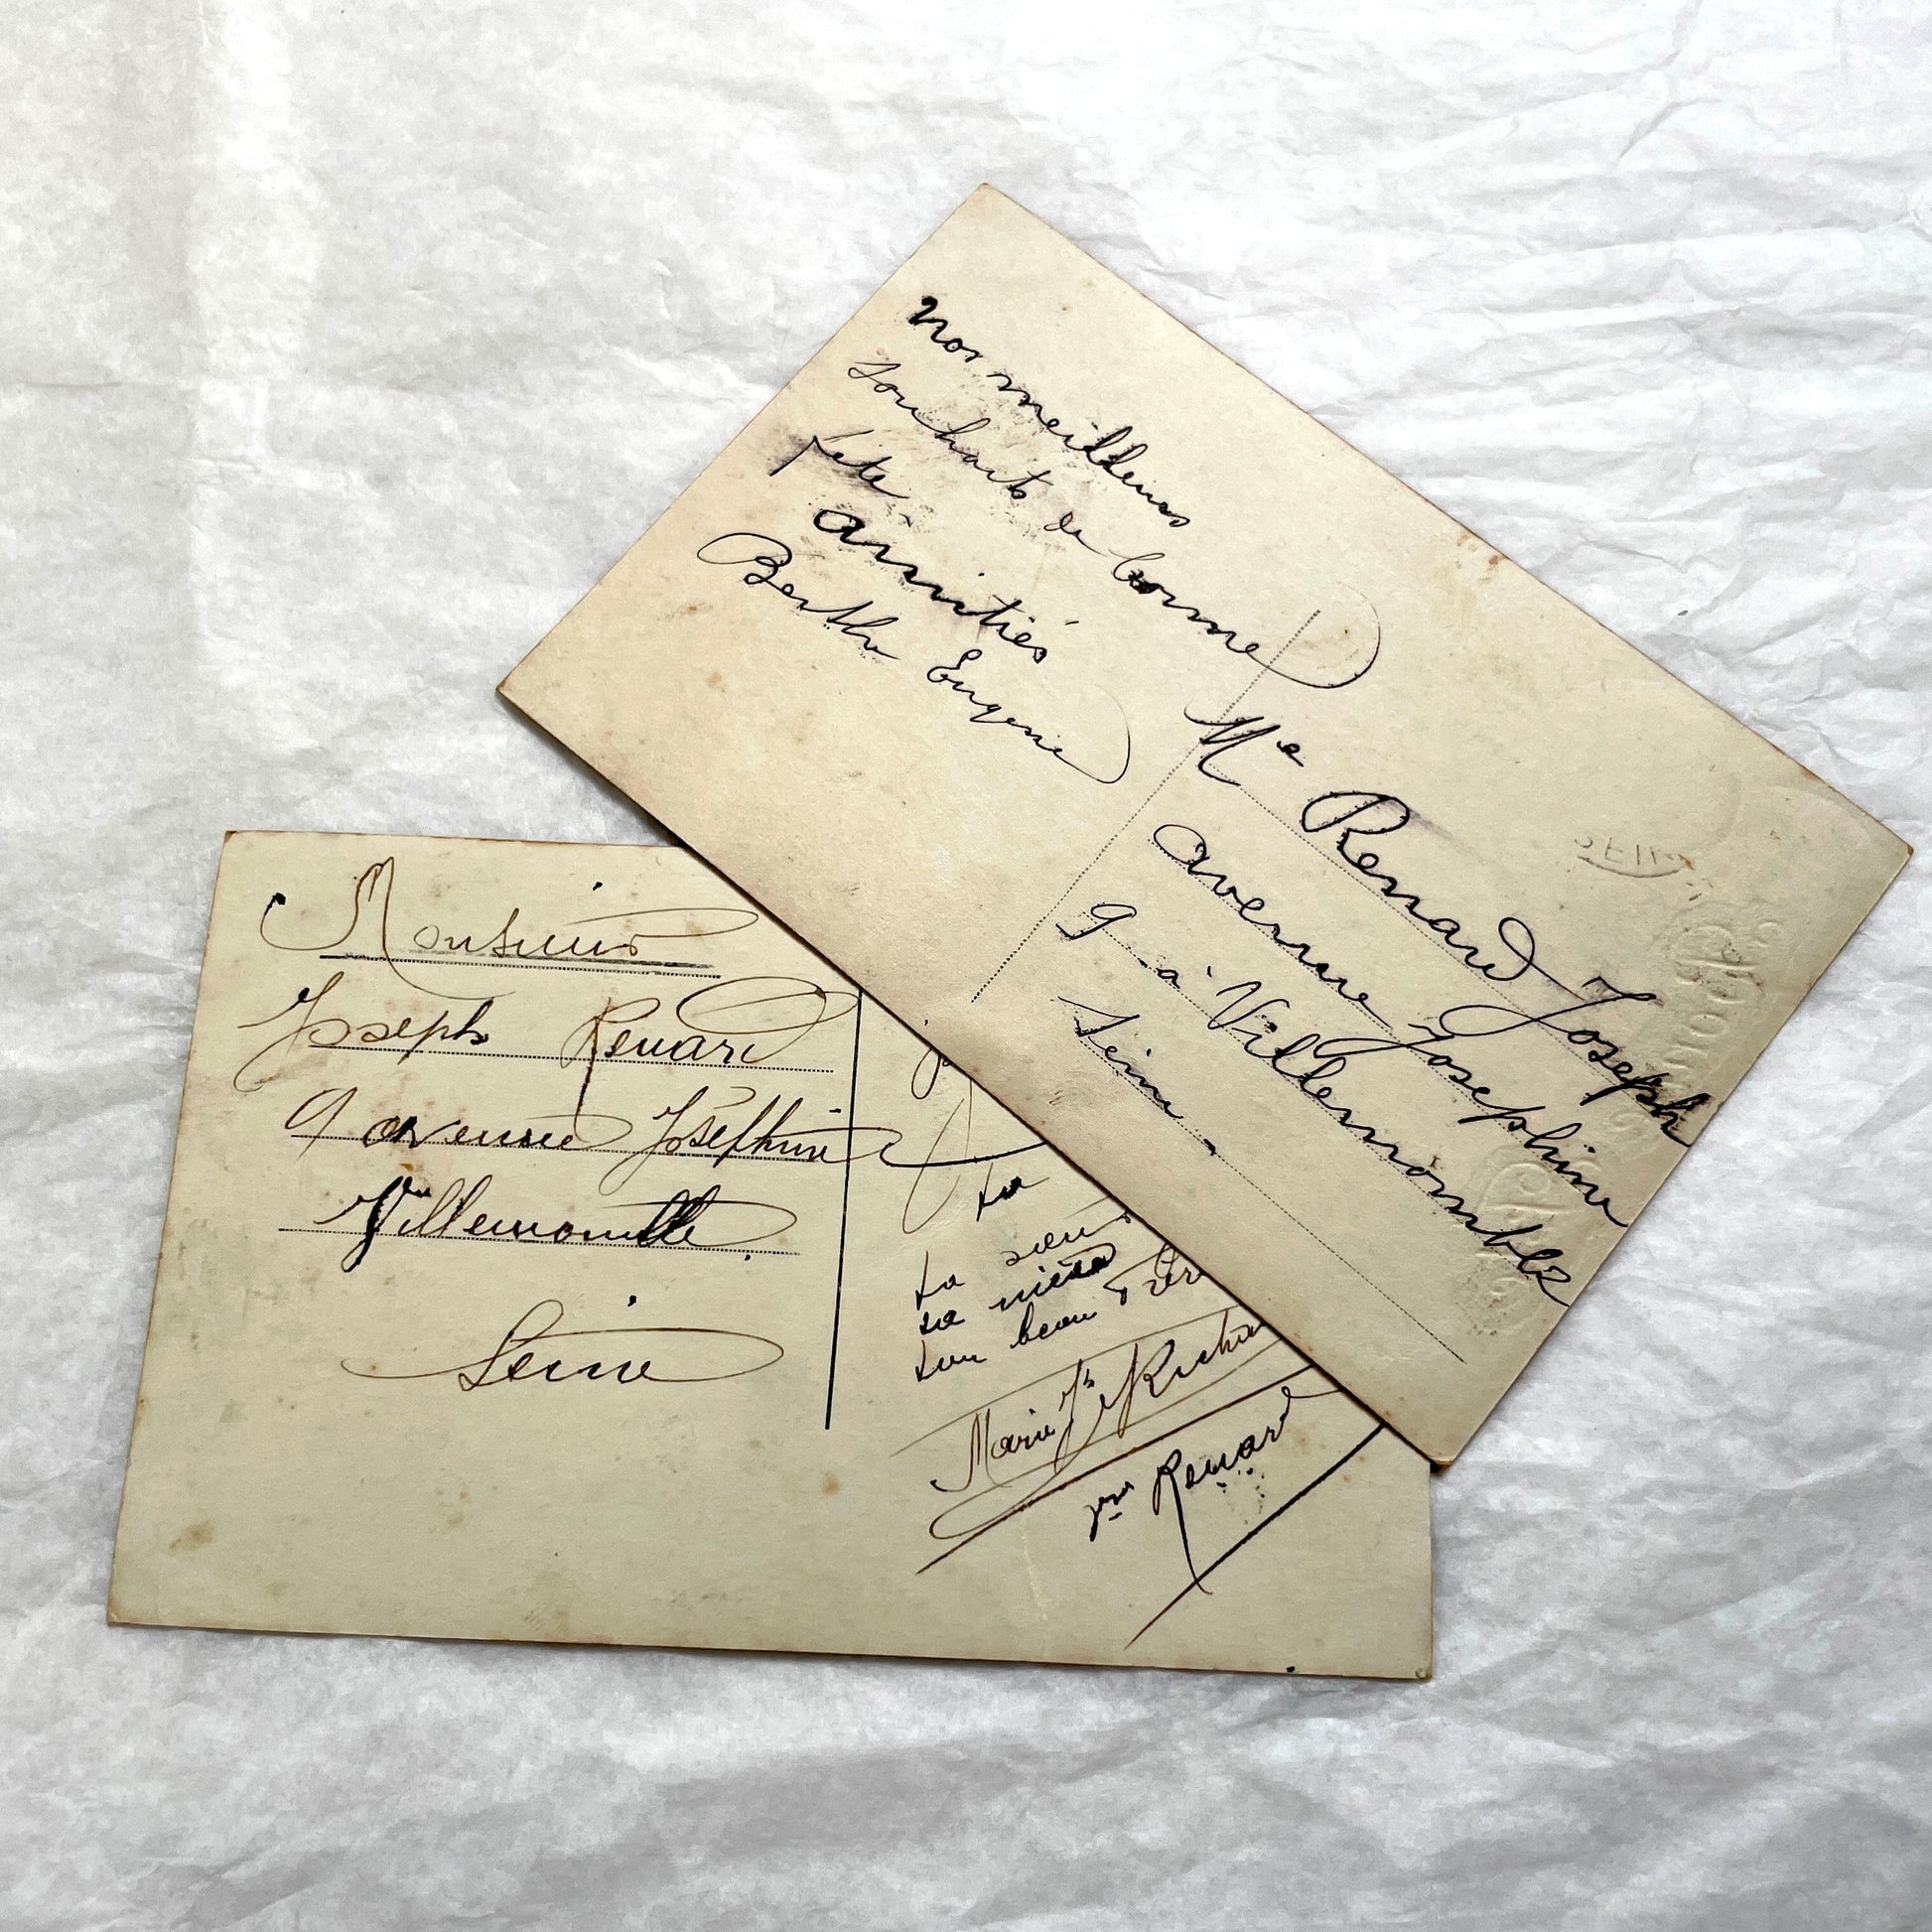 nos meilleurs
souhaits de bonne
fête
amitiés
Berthe Eugene
Me Renard Joseph
avenue Josephine
9 à Villemomble
Seine
Monsieur
Joseph Renard
9 avenue Joséphine
Villemomble
Seine
ta
ta sœur
ta nièce
ton beau Frère
Marie
Renard